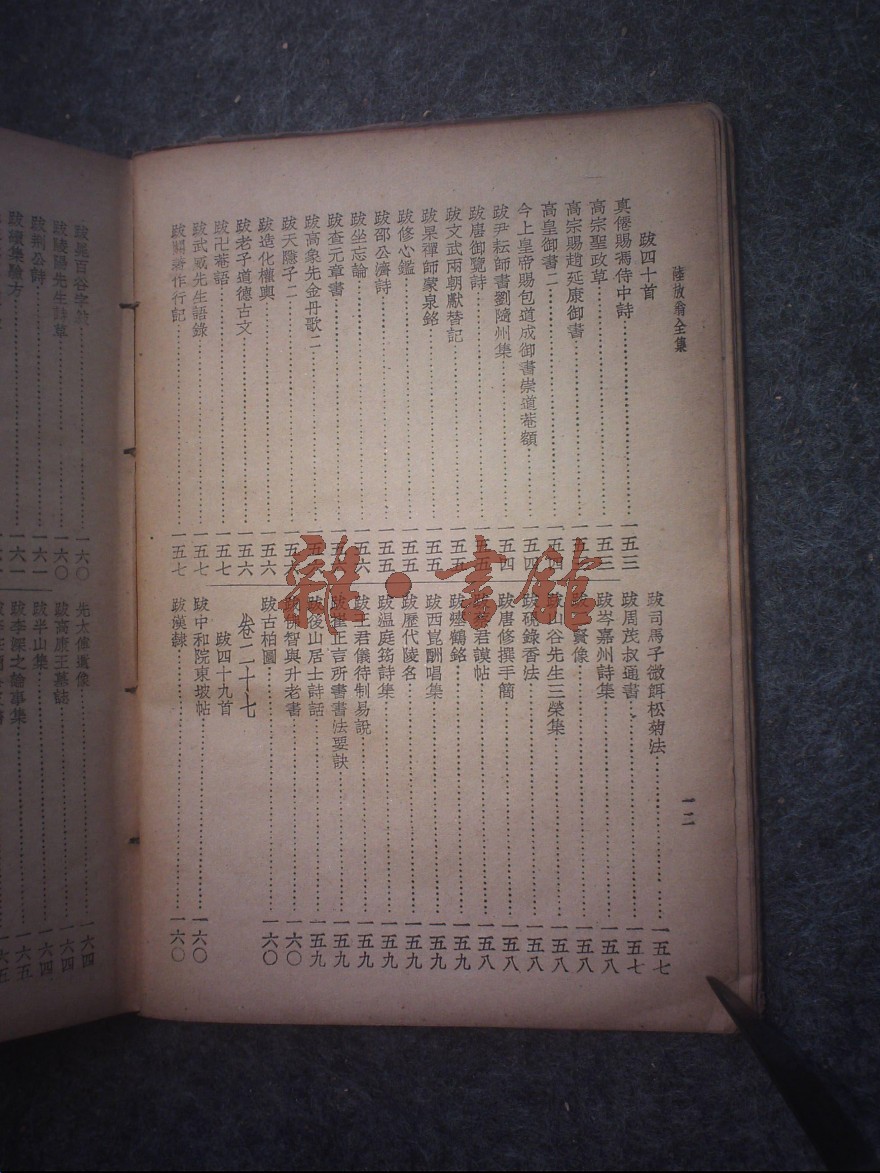 陸放翁全集
一二
跋四十首
真僊賜馮侍中詩⋯⋯一五三
高宗聖政草⋯⋯一五三
高宗賜趙延康御書⋯⋯一五
高皇御書二⋯⋯一五四
今上皇帝賜包道成御書崇道菴額⋯⋯一五四
跋尹耘師書劉隨州集⋯⋯一五四
跋唐御覽詩⋯⋯一五五
跋文武兩朝獻替記⋯⋯一五五
跋杲禪師蒙泉銘⋯⋯一五五
跋修心鑑⋯⋯一五五
跋邵公濟詩⋯⋯一五五
跋坐忘論⋯⋯一五六
跋查元章書⋯⋯一五六
跋高象先金丹歌二⋯⋯一五六
跋天隱子二⋯⋯一五六
跋造化權輿⋯⋯一五六
跋老子道德古文⋯⋯一五六
跋卍菴語⋯⋯一五七
跋武威先生語錄⋯⋯一五七
跋關著作行記⋯⋯一五七
跋司馬子微餌松菊法⋯⋯一五七
跋周茂叔通書⋯⋯一五七
跋岑嘉州詩集⋯⋯一五八
賢像⋯⋯一五八
跋山谷先生三榮集⋯⋯一五八
跋硯錄香法⋯⋯一五八
跋唐修撰手簡⋯⋯一五八
跋蔡君謨帖⋯⋯一五八
跋瘞鶴銘⋯⋯一五九
跋西崑酬唱集⋯⋯一五九
跋歷代陵名⋯⋯一五九
跋温庭筠詩集⋯⋯一五九
跋王君儀待制易說⋯⋯一五九
跋崔正言所書書法要訣⋯⋯一五九
跋後山居士詩話⋯⋯一五九
跋佛智與升老書⋯⋯一六〇
跋古柏圖⋯⋯一六〇
卷二十七
跋四十九首
跋中和院東坡帖⋯⋯一六〇
跋漢隸⋯⋯一六〇
跋晁百谷字敘⋯⋯一六〇
跋陵陽先生詩草⋯⋯一六〇
跋荊公詩⋯⋯一六一
跋續集驗方⋯⋯一六一
先太傅遺像⋯⋯一六四
跋高康王墓誌⋯⋯一六四
跋半山集⋯⋯一六四
跋李深之論事集⋯⋯一六五
雜·書館